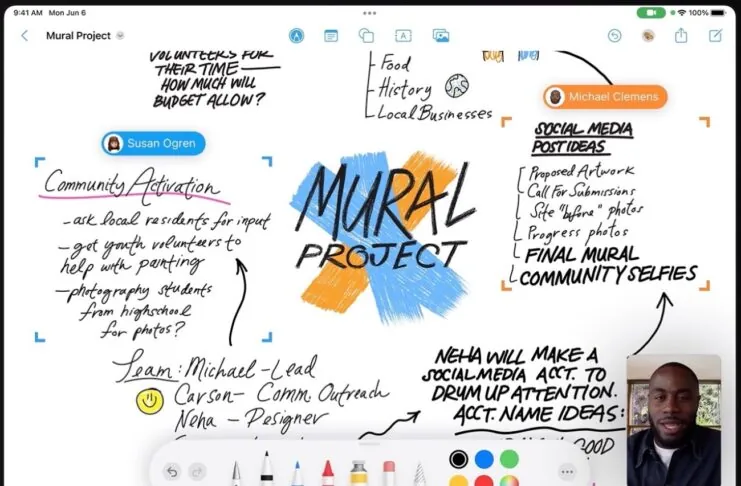 9:41 AM Mon Jun 6
100%
Mural Project
VOLUNTEERS FOR
THEIR TIME —
HOW MUCH WILL
BUDGET ALLOW?
- Food
- History
- Local Businesses
Michael Clemens
Susan Ogren
SOCIAL MEDIA
POST IDEAS
Proposed Artwork
Call For Submissions
Site "before" photos
Progress photos
FINAL MURAL
COMMUNITY SELFIES
Community Activation
- ask local residents for input
- get youth volunteers to
help with painting
- photography students
from highschool
for photos?
MURAL
PROJECT
Team: Michael - Lead
Carson - Comm Outreach
Neha - Designer
NEHA WILL MAKE A
SOCIAL MEDIA ACCT. TO
DRUM UP ATTENTION.
ACCT. NAME IDEAS:
GOOD